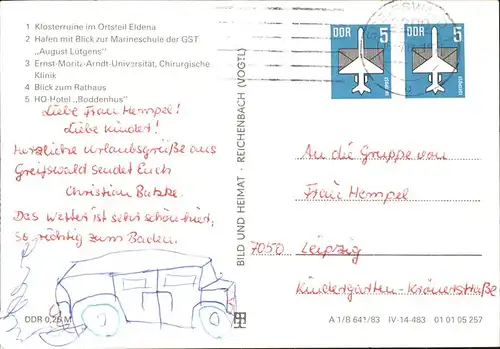 1 Klosterruine im Ortsteil Eldena
2 Hafen mit Blick zur Marineschule der GST
„August Lütgens"
3 Ernst-Moritz-Arndt-Universität, Chirurgische
Klinik
4 Blick zum Rathaus
5 HO-Hotel „Boddenhus"
Liebe Frau Hempel!
Liebe Kinder!
Herzliche Urlaubsgrüße aus
Greifswald sendet Euch
Christian Batzke.
Das Wetter ist sehr schön hier,
so richtig zum Baden.
DDR 0,25 M
BILD UND HEIMAT · REICHENBACH (VOGTL)
DDR 5
DDR 5
An die Gruppe von
Frau Hempel
7050 Leipzig
Kindergarten - Krönerstraße
A 1/B 641/83 IV-14-483 01 01 05 257